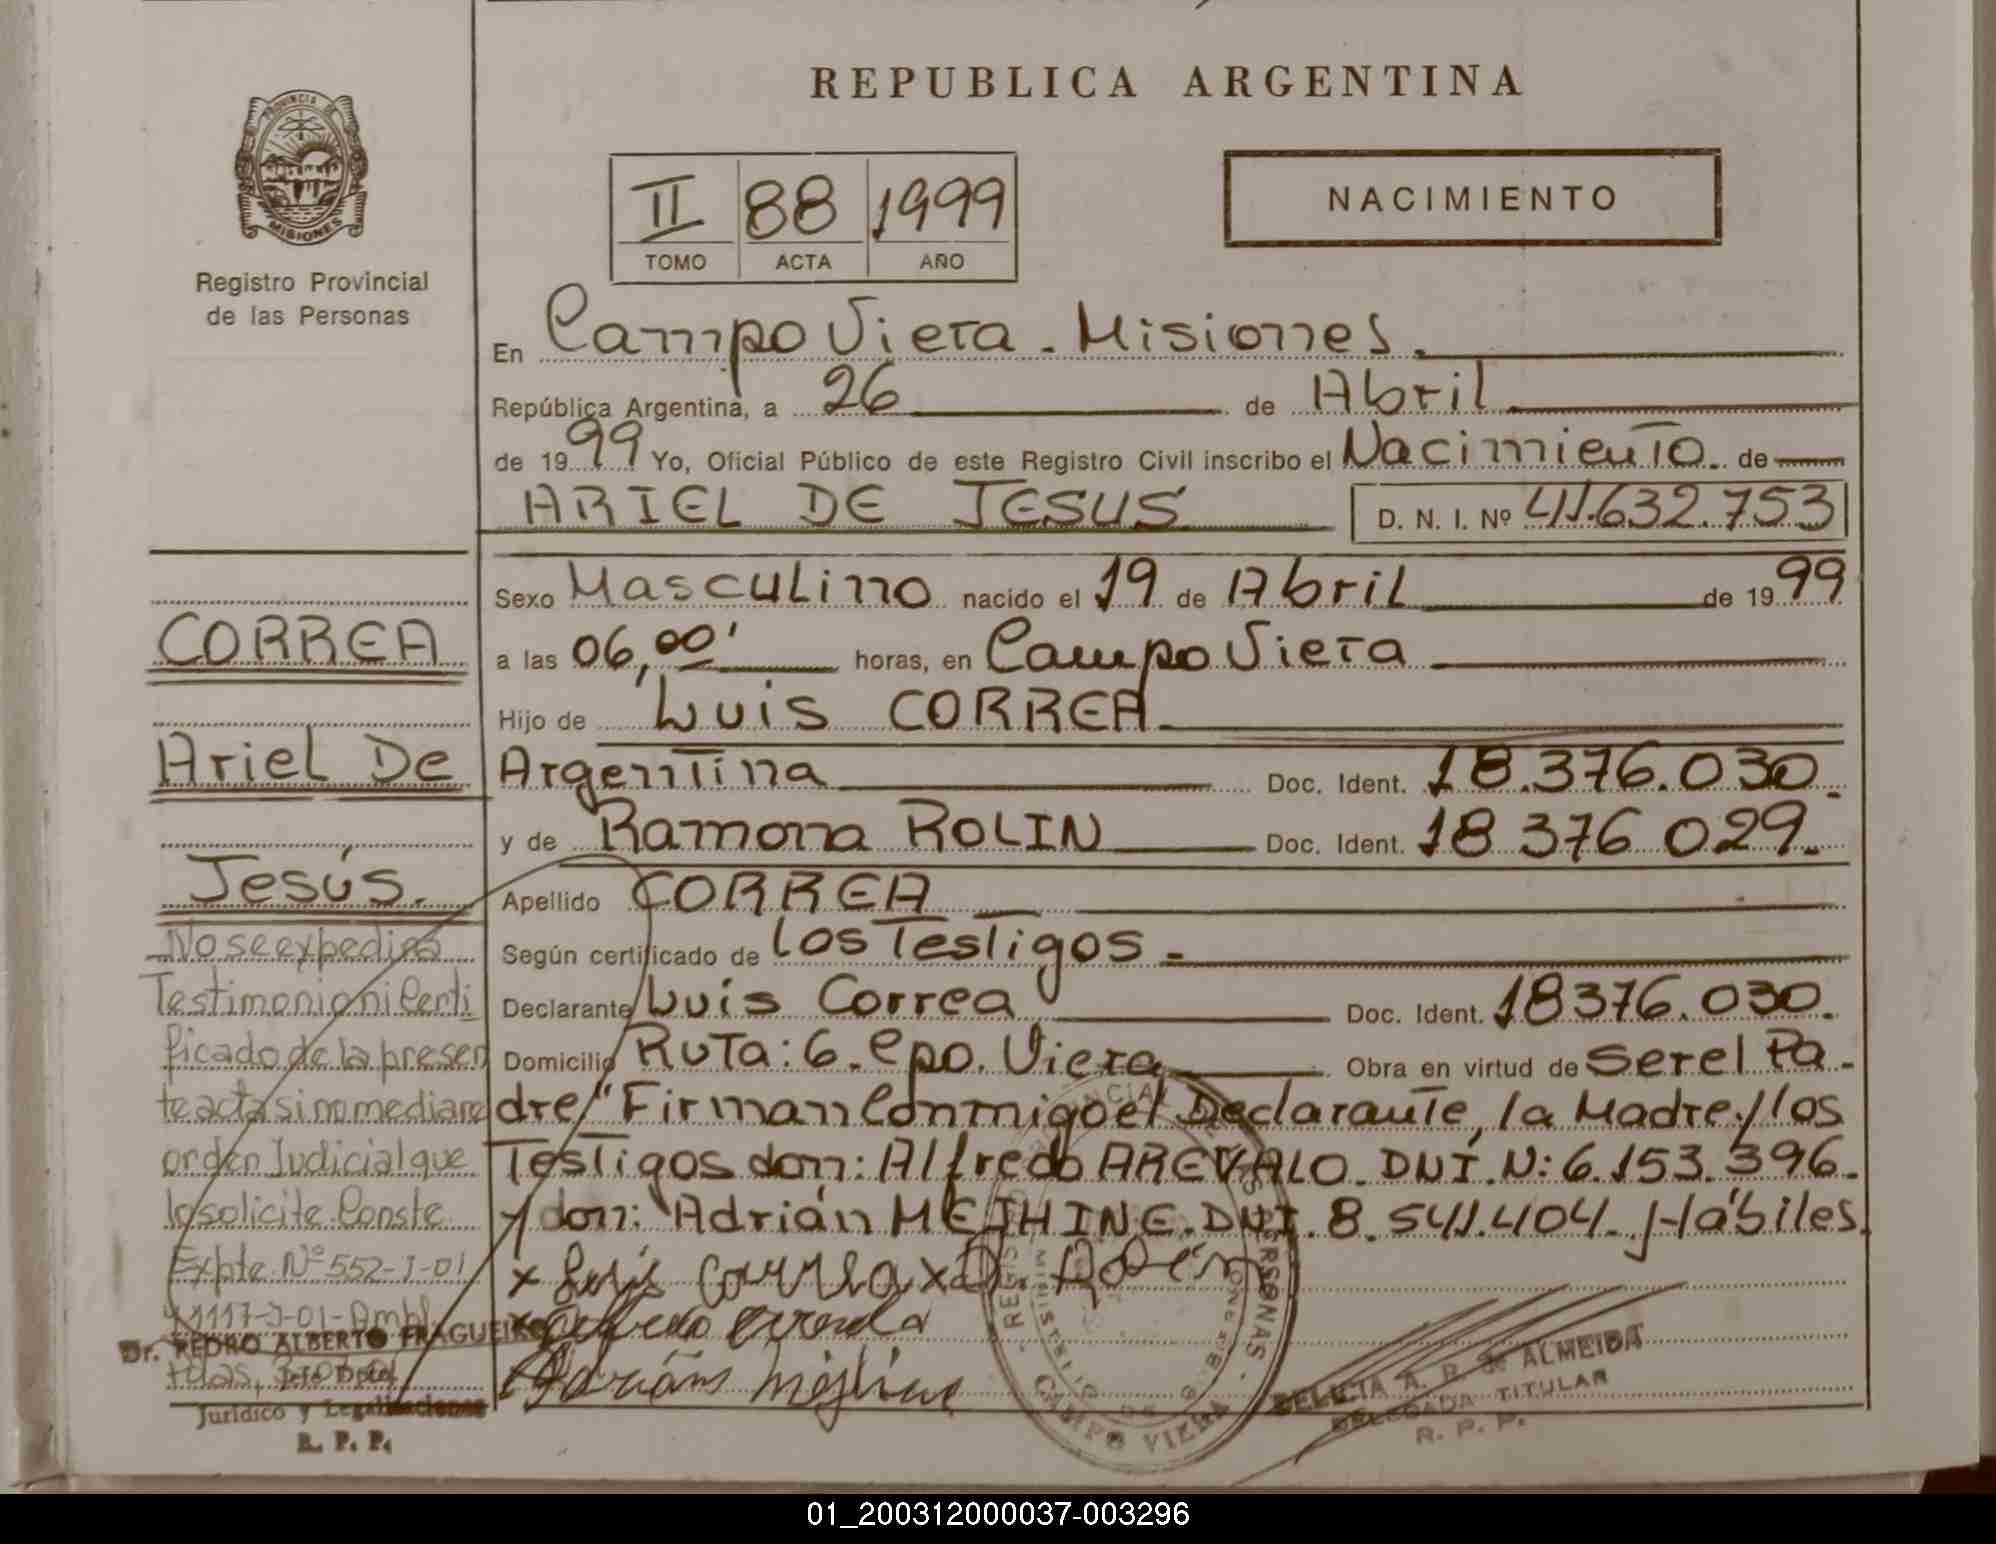 REPUBLICA ARGENTINA
PROVINCIA DE
MISIONES
Registro Provincial
de las Personas
II 88 1999
TOMO ACTA AÑO
NACIMIENTO
En Campo Viera. Misiones.
República Argentina, a 26 de Abril
de 1999 Yo, Oficial Público de este Registro Civil inscribo el Nacimiento de
ARIEL DE JESUS D. N. I. Nº 41.632.753
Sexo Masculino nacido el 19 de Abril de 1999
a las 06,00' horas, en Campo Viera
Hijo de Luis CORREA
Argentina Doc. Ident. 18.376.030.
y de Ramona ROLIN Doc. Ident. 18 376 029.
Apellido CORREA
Según certificado de los Testigos.
Declarante Luis Correa Doc. Ident. 18376.030.
Domicilio Ruta: 6. Cpo. Viera Obra en virtud de ser el Pa-
dre/" Firman Conmigo el Declarante, la Madre y los
Testigos don: Alfredo AREVALO. DNI. N: 6.153.396.
y don: Adrián MEJHINE. DNI. 8.541.404. Hábiles.
x Luis Correa x
Adrián
CORREA
Ariel De
Jesús.
No se expedira
Testimonio ni Certi
ficado de la presen
te acta si no mediare
orden Judicial que
lo solicite. Conste
Expte. Nº 552-J-01
y 1117-J-01-
Dr. PEDRO ALBERTO FRAGUEIRO
Jurídico y Legalizaciones
R. P. P.
CAMPO VIERA
DELICIA A. R. de ALMEIDA
DELEGADA TITULAR
R. P. P.
01_200312000037-003296